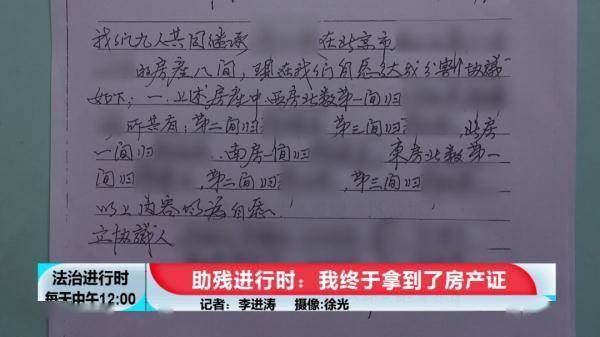 我们九人共同继承 在北京市
的房产八间，现在我们自愿达成分割协议
如下；一.上述房产中西房北数第一间归
所共有；第二间归 第三间归 ，北房
一间归 ..南房一间归 東房北数第一
间归 ，第二间归 ，第三间归
以上内容均为自愿、
立协议人
法治进行时 助残进行时：我终于拿到了房产证
每天中午12:00 记者：李进涛 摄像:徐光